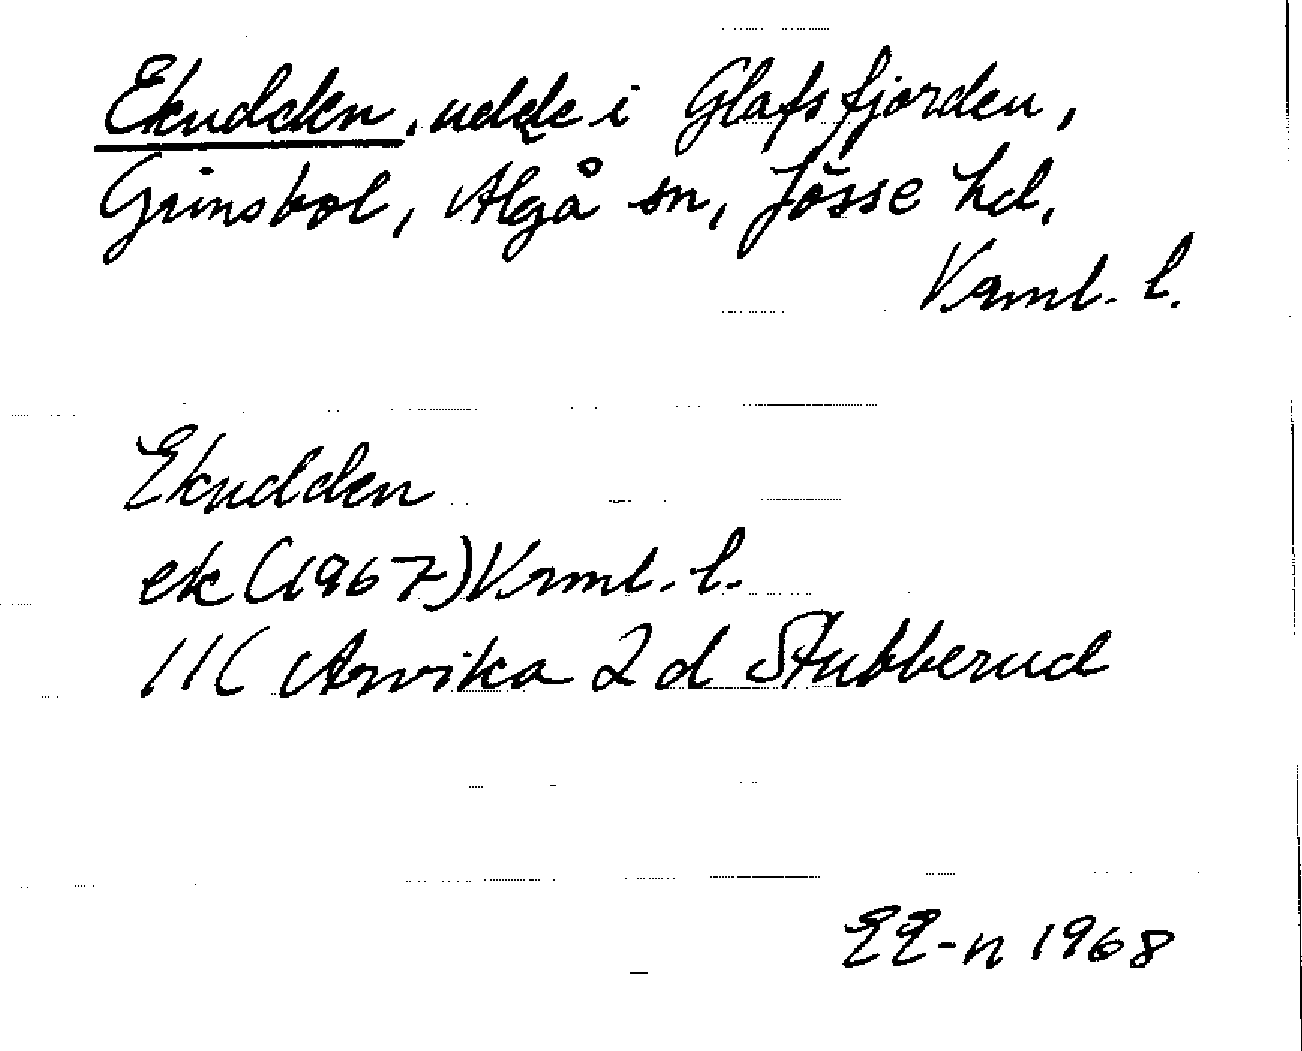 Ekudden, udde i Glafsfjorden,
Grinsbol, Älgå sn, Jösse hd,
Vrml. l.
Ekudden
ek (1967) Vrml. l.
11C Arvika 2 d Stubberud
EE-n 1968